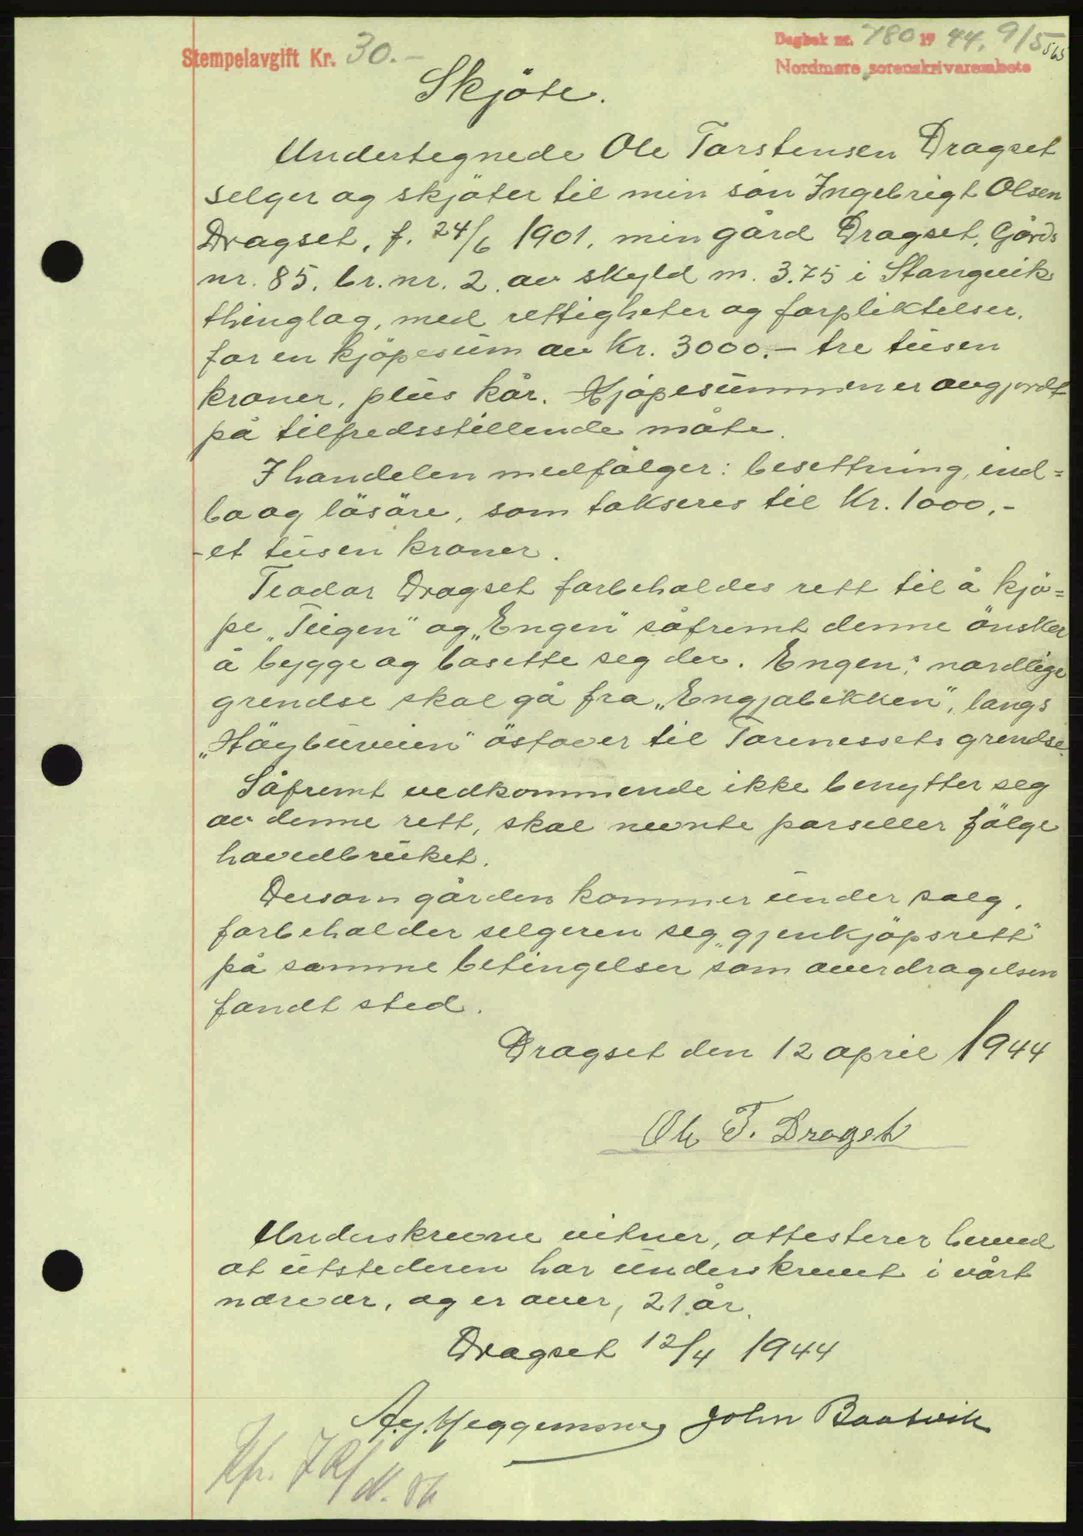 Stempelavgift Kr. 30.-
Dagbok nr. 780 19 44. 9/5 565
Nordmøre sorenskrivarembete
Skjöte.
Undertegnede Ole Torstensen Dragset
selger og skjöter til min sön Ingebrigt Olsen
Dragset, f. 24/6 1901, min gård Dragset, Gårds
nr. 85. br. nr. 2. av skyld m. 3.75 i Stangvik
thinglag, med rettigheter og forpliktelser,
for en kjöpesum av Kr. 3000.- tre tusen
kroner, plus kår. Kjöpesummen er avgjordt
på tilfredsstillende måte.
I handelen medfölger: besettning, ind=
bo og lösöre, som takseres til Kr. 1000.-
-et tusen kroner.
Teodor Dragset forbeholdes rett til å kjö=
pe „Teigen" og „Engen" såfremt denne önsker
å bygge og bosette seg der. Engen: nordlige
grendse skal gå fra „Engjabekken", langs
„Höybuveien" östover til Torenessets grendse.
Såfremt vedkommende ikke benytter seg
av denne rett, skal nevnte parseller fölge
hovedbruket.
Dersom gården kommer under salg,
forbeholder selgeren seg „gjenkjöpsrett"
på samme betingelser som overdragelsen
fandt sted.
Dragset den 12 april 1944
Ole T. Dragset
Underskrevne vitner, attesterer herved
at utstederen har underskrevet i vårt
nærvær, og er over, 21 år.
Dragset 12/4 1944
John Baatvik